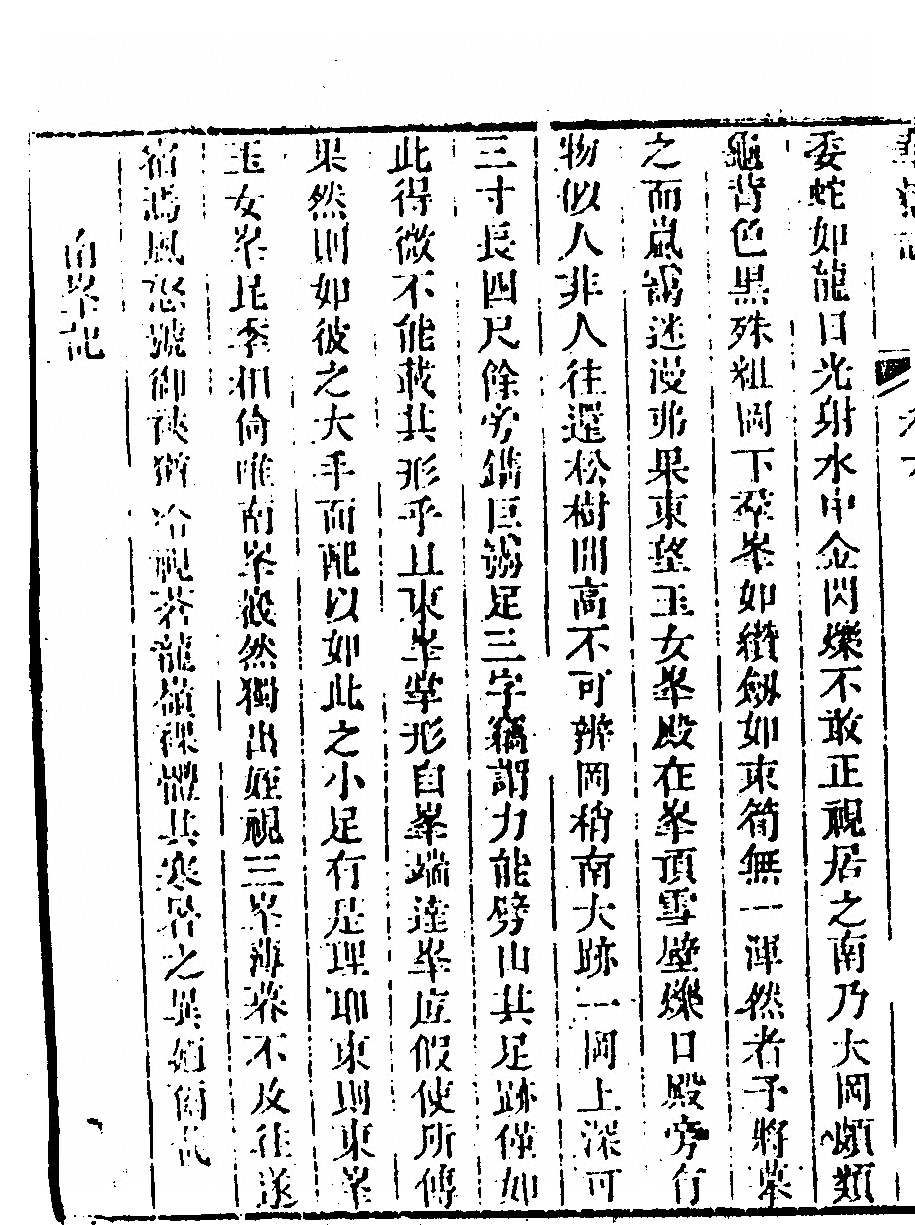 委蛇如龍日光射水中金閃爍不敢正視居之南乃大岡頗類
龜背色黑殊粗岡下萃峯如纘劔如束筍無一渾然者予將摹
之而嵐靄迷漫弗果東望玉女峯殿在峯頂雪壁爍日殿旁行
物似人非人往還松樹間高不可辨岡稍南大跡一岡上深可
三寸長四尺餘旁鐫巨靈足三字竊謂力能劈山其足跡僅如
此得微不能載其形乎且東峯掌形自峯端達峯底假使所傳
果然則如彼之大手而配以如此之小足有是理耶東則東峯
玉女峯昆季相倚唯南峯毅然獨出姪視三峯薄暮不及往遂
宿焉風怒號御裌猶冷視蒼龍嶺裸體其寒暑之異迺爾
峯記